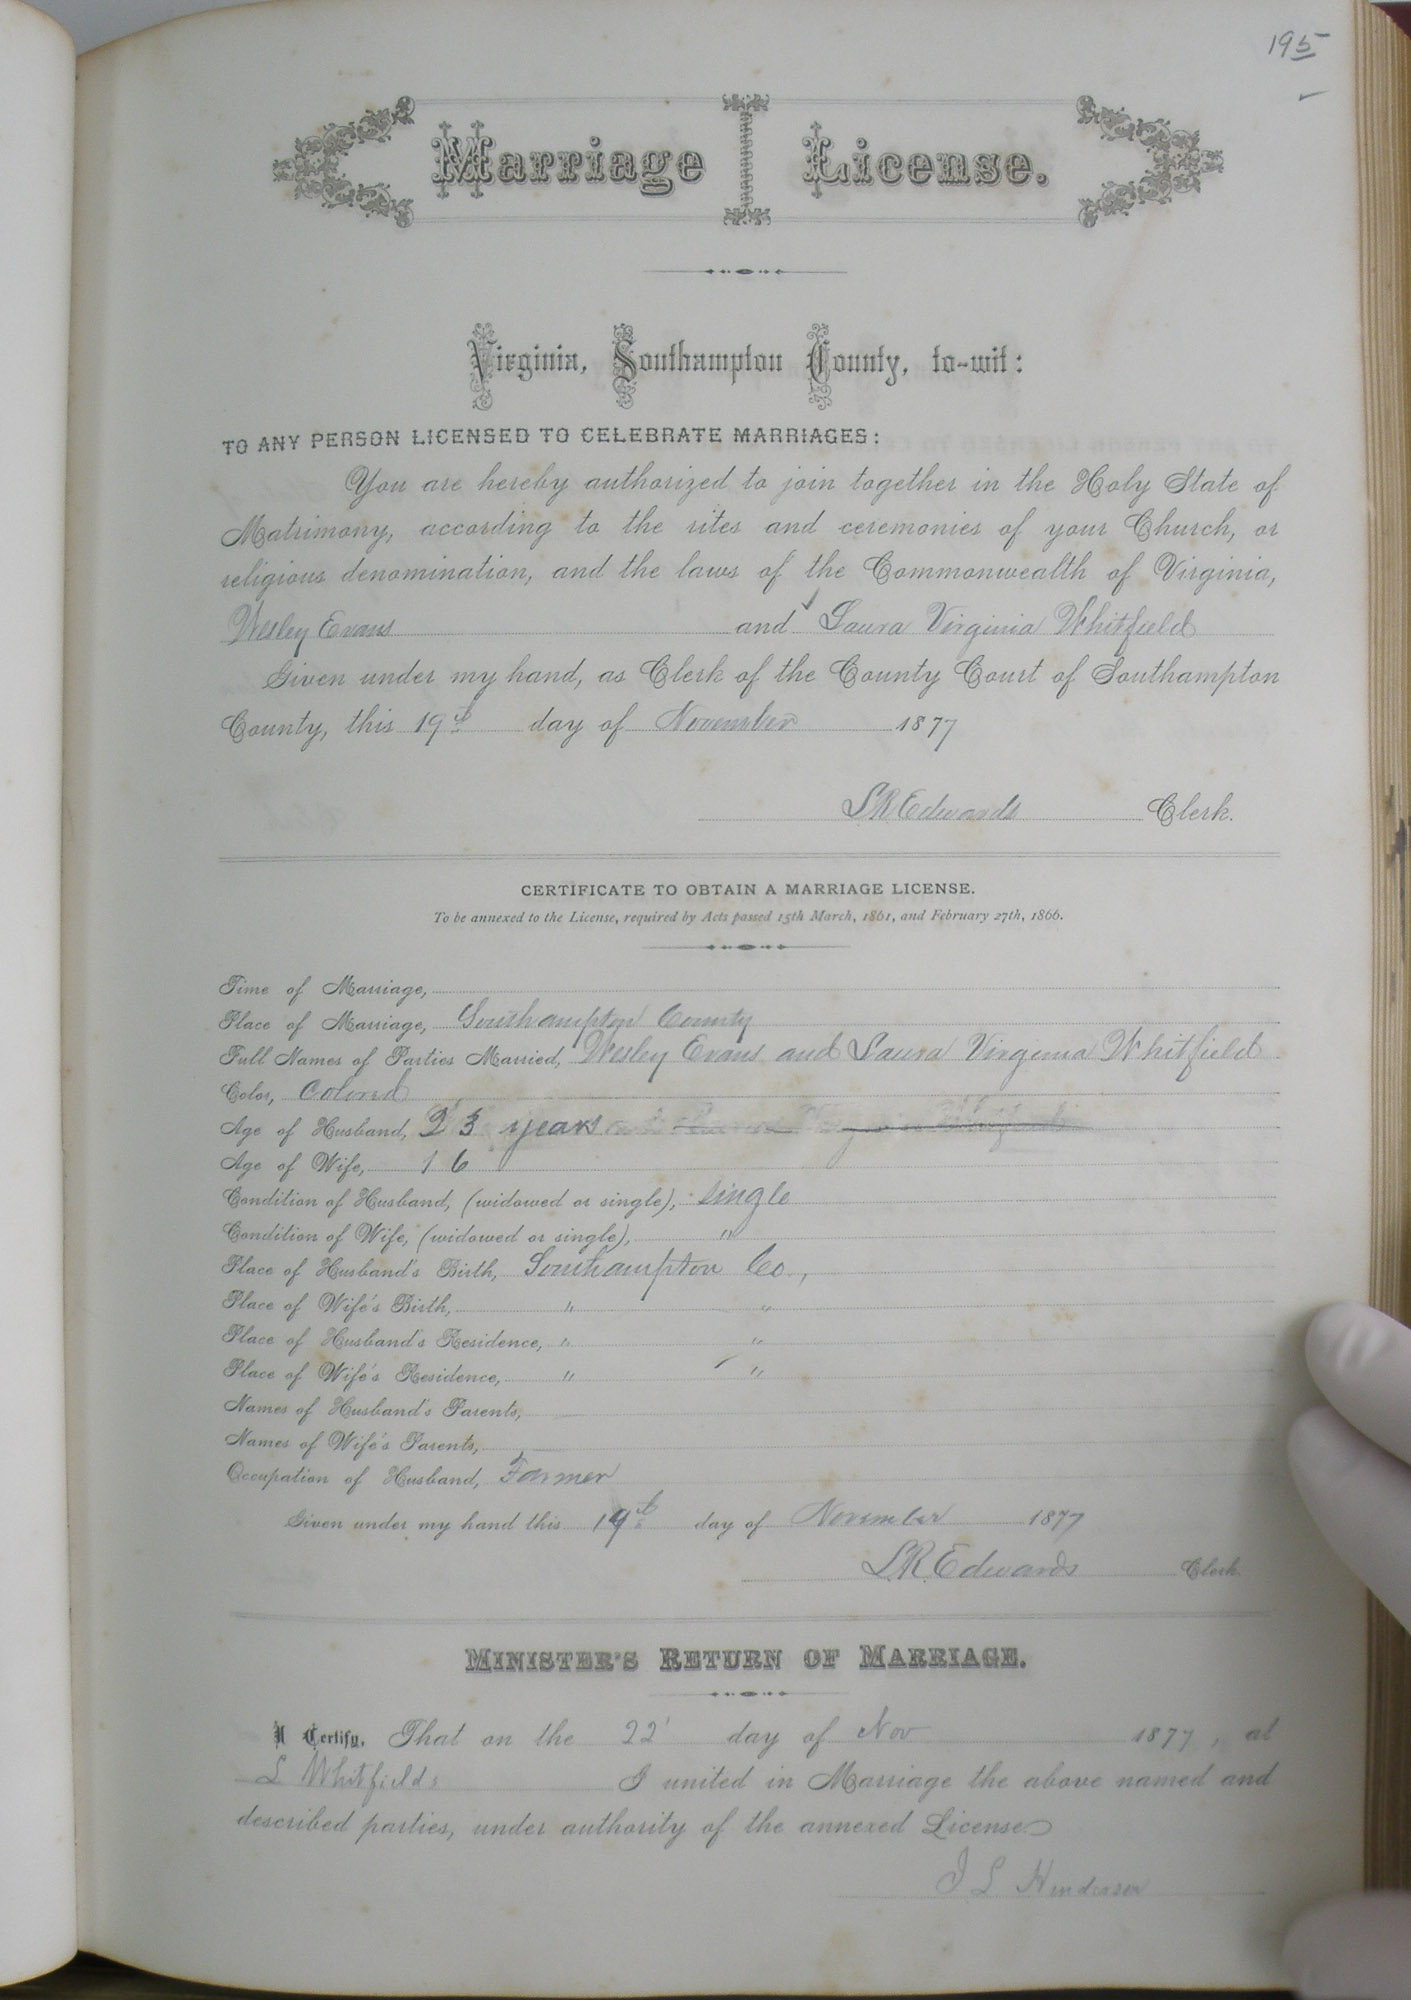 195
Marriage License.
Virginia, Southampton County, to-wit:
TO ANY PERSON LICENSED TO CELEBRATE MARRIAGES:
You are hereby authorized to join together in the Holy State of
Matrimony, according to the rites and ceremonies of your Church, or
religious denomination, and the laws of the Commonwealth of Virginia,
Wesley Evans and Laura Virginia Whitfield
Given under my hand, as Clerk of the County Court of Southampton
County, this 19th day of November 1877
L R Edwards Clerk.
CERTIFICATE TO OBTAIN A MARRIAGE LICENSE.
To be annexed to the License, required by Acts passed 15th March, 1861, and February 27th, 1866.
Time of Marriage,
Place of Marriage, Southampton County
Full Names of Parties Married, Wesley Evans and Laura Virginia Whitfield
Color, Colored
Age of Husband, 23 years
Age of Wife, 16
Condition of Husband, (widowed or single), single
Condition of Wife, (widowed or single), "
Place of Husband's Birth, Southampton Co.,
Place of Wife's Birth, " "
Place of Husband's Residence, " "
Place of Wife's Residence, " "
Names of Husband's Parents,
Names of Wife's Parents,
Occupation of Husband, Farmer
Given under my hand this 19th day of November 1877
L. R. Edwards Clerk
MINISTER'S RETURN OF MARRIAGE.
I Certify, That on the 22 day of Nov 1877, at
L Whitfields I united in Marriage the above named and
described parties, under authority of the annexed License
J L Henderson